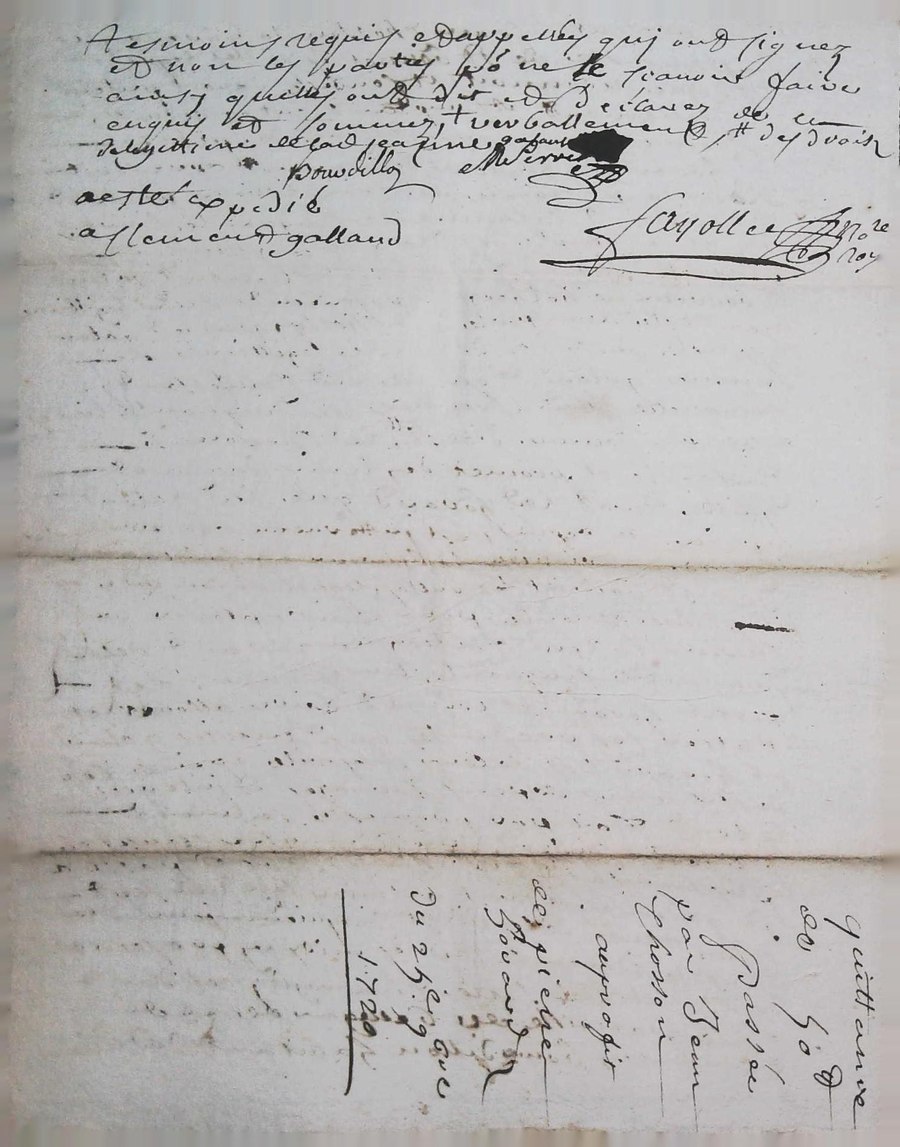 Tesmoins requis et appellés qui ont signez
et non les parties po ne le scavoir faire
ainsi quelles ont dit et declarez
enquis et sommez + verballement # des droits
de legittime de lad jeanne
Bourdillon
a esté expedié
a clement galland
Fayolle nore
roy
quittance
de 50 #
passée
par Jean
Chosson
au profit
de pierre
du 25e 9bre
1720